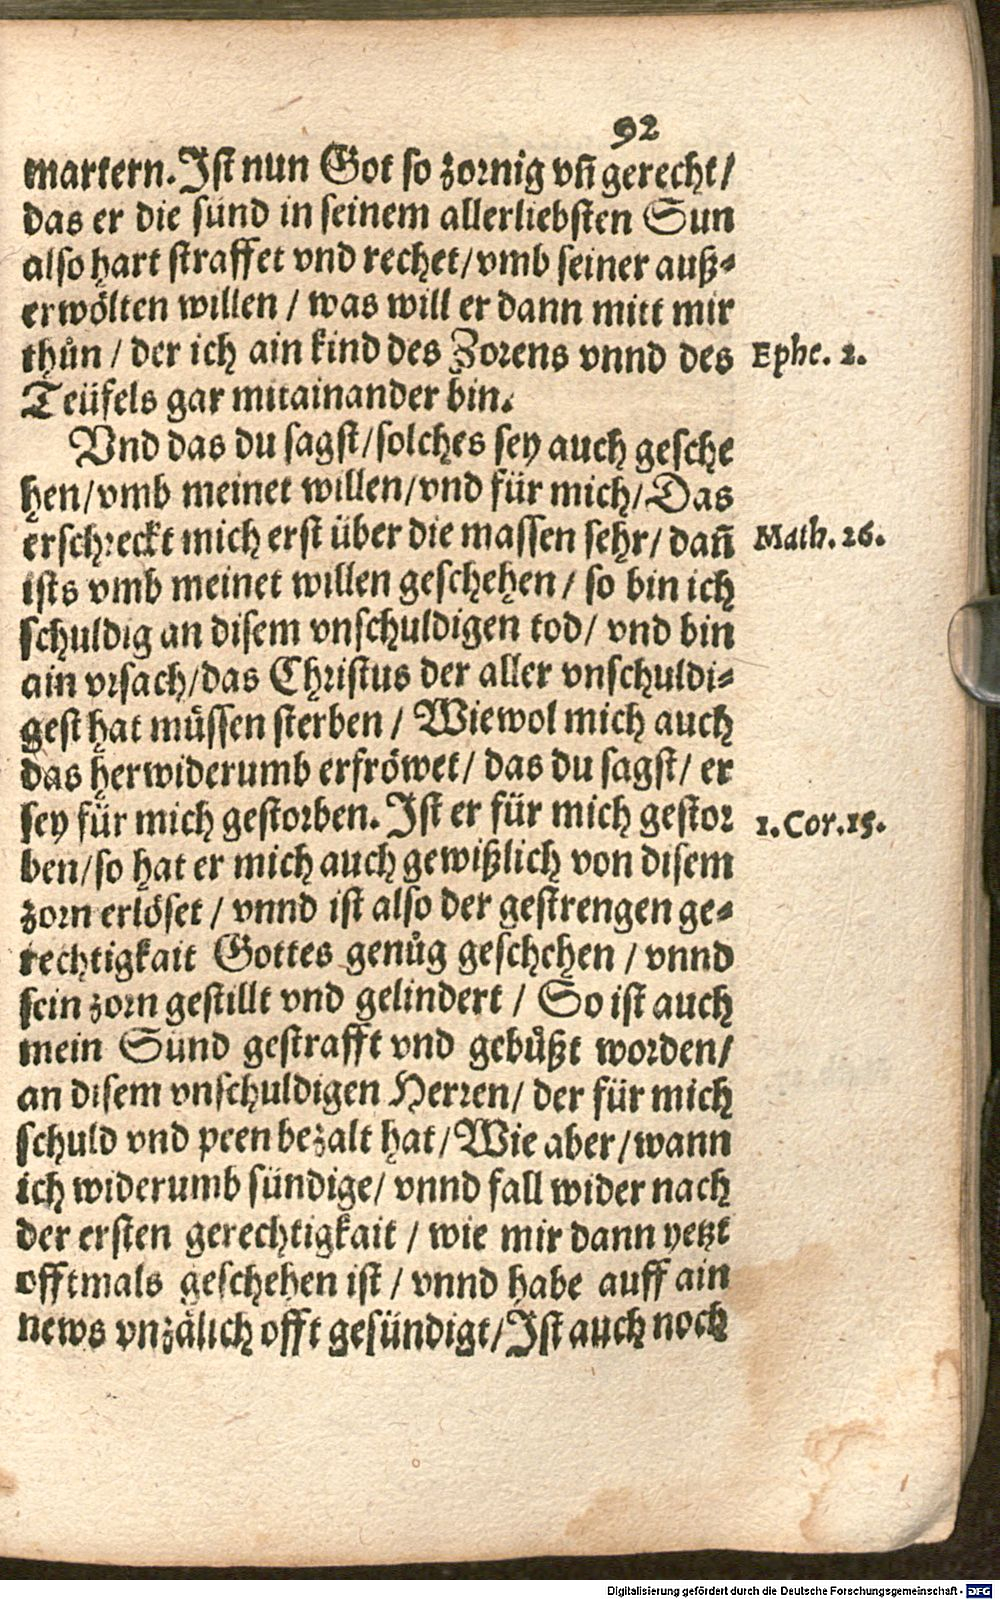 92
martern. Ist nun Got so zornig vñ gerecht/
das er die sünd in seinem allerliebsten Sun
also hart straffet vnd rechet/ vmb seiner auß-
erwölten willen / was will er dann mitt mir
thůn / der ich ain kind des Zorens vnnd des
Ephe. 2.
Teüfels gar mitainander bin.
Vnd das du sagst/ solches sey auch gesche
hen/ vmb meinet willen/ vnd für mich/ Das
erschreckt mich erst über die massen sehr/ dañ
Math. 26.
ists vmb meinet willen geschehen / so bin ich
schuldig an disem vnschuldigen tod/ vnd bin
ain vrsach/ das Christus der aller vnschuldi-
gest hat müssen sterben / Wiewol mich auch
das herwiderumb erfröwet/ das du sagst/ er
sey für mich gestorben. Ist er für mich gestor
1. Cor. 15.
ben/ so hat er mich auch gewißlich von disem
zorn erlöset / vnnd ist also der gestrengen ge-
rechtigkait Gottes genůg geschehen / vnnd
sein zorn gestillt vnd gelindert / So ist auch
mein Sünd gestrafft vnd gebůßt worden/
an disem vnschuldigen Herren/ der für mich
schuld vnd peen bezalt hat/ Wie aber/ wann
ich widerumb sündige/ vnnd fall wider nach
der ersten gerechtigkait / wie mir dann yetzt
offtmals geschehen ist / vnnd habe auff ain
news vnzälich offt gesündigt/ Ist auch noch
Digitalisierung gefördert durch die Deutsche Forschungsgemeinschaft - DFG